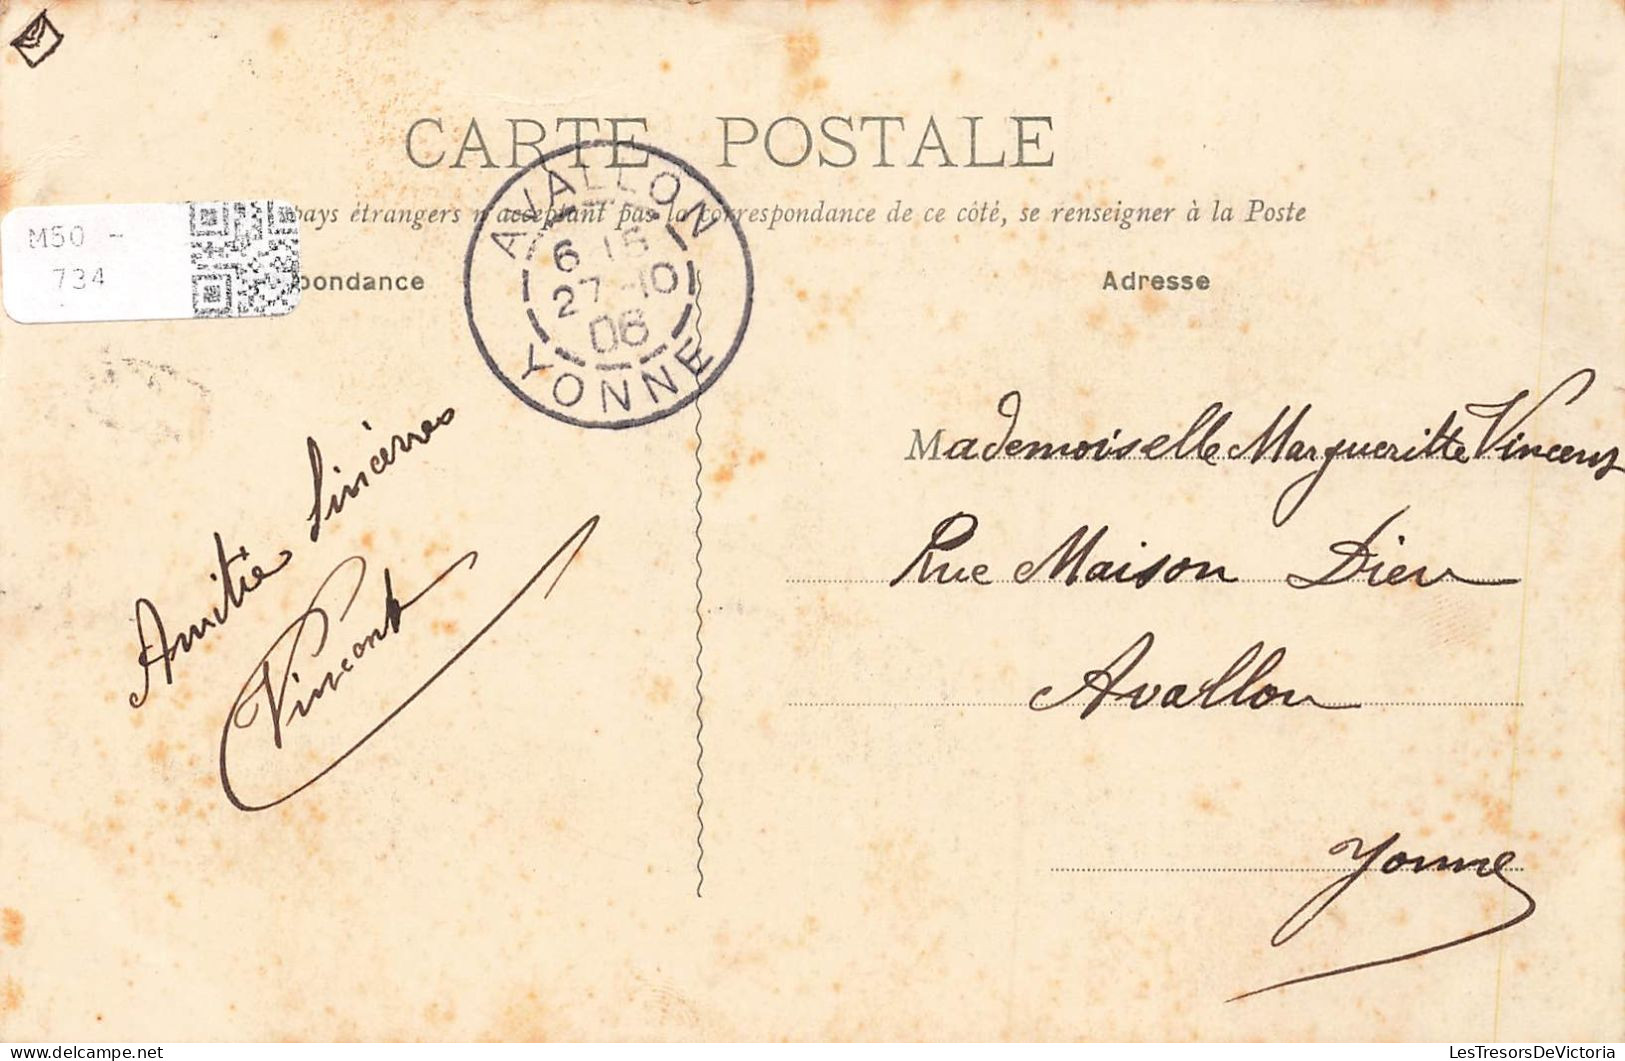 CARTE POSTALE
pays étrangers n'acceptant pas la correspondance de ce côté, se renseigner à la Poste
M50 -
734
pondance
Adresse
AVALLON
6 15
27 -10
06
YONNE
Amitié Sincères
Vincent
Mademoiselle Margueritte Vincent
Rue Maison Dieu
Avallon
Yonne
LesTresorsDeVictoria